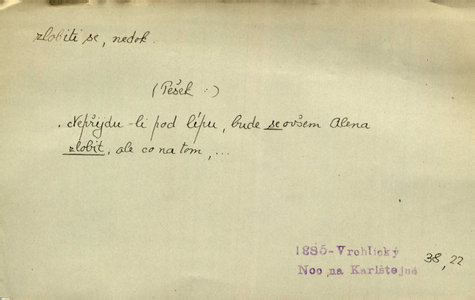 zlobiti se, nedok.
(Pešek :)
. Nepřijdu-li pod lípu, bude se ovšem Alena
zlobit, ale co na tom, ...
1885-Vrchlický 38, 22
Noc na Karlštejně